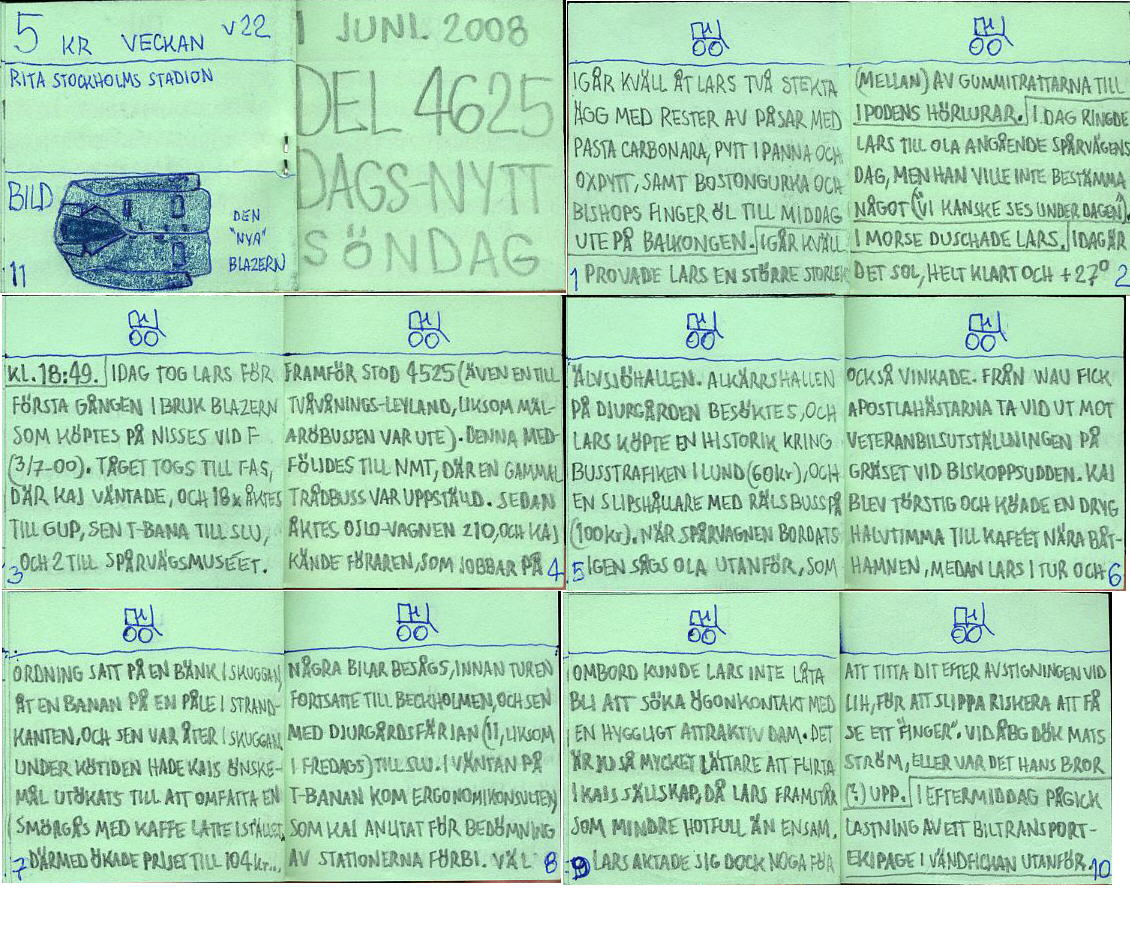 5 KR VECKAN V22
RITA STOCKHOLMS STADION
BILD
DEN
"NYA"
BLAZERN
11
1 JUNI. 2008
DEL 4625
DAGS-NYTT
SÖNDAG
IGÅR KVÄLL ÅT LARS TVÅ STEKTA
ÄGG MED RESTER AV PÅSAR MED
PASTA CARBONARA, PYTT I PANNA OCH
OXPYTT, SAMT BOSTONGURKA OCH
BISHOPS FINGER ÖL TILL MIDDAG
UTE PÅ BALKONGEN. IGÅR KVÄLL
1 PROVADE LARS EN STÖRRE STORLEK
(MELLAN) AV GUMMITRATTARNA TILL
IPODENS HÖRLURAR. I DAG RINGDE
LARS TILL OLA ANGÅENDE SPÅRVÄGENS
DAG, MEN HAN VILLE INTE BESTÄMMA
NÅGOT ("VI KANSKE SES UNDER DAGEN").
I MORSE DUSCHADE LARS. IDAG ÄR
DET SOL, HELT KLART OCH +27° 2
KL. 18:49. IDAG TOG LARS FÖR
FÖRSTA GÅNGEN I BRUK BLAZERN
SOM KÖPTES PÅ NISSES VID F
(3/7-00). TÅGET TOGS TILL FAS,
DÄR KAJ VÄNTADE, OCH 18x ÅKTES
TILL GUP, SEN T-BANA TILL SLU,
3 OCH 2 TILL SPÅRVÄGSMUSÉET.
FRAMFÖR STOD 4525 (ÄVEN EN TILL
TVÅVÅNINGS-LEYLAND, LIKSOM MÄL-
ARÖBUSSEN VAR UTE). DENNA MED-
FÖLJDES TILL NMT, DÄR EN GAMMAL
TRÅDBUSS VAR UPPSTÄLLD. SEDAN
ÅKTES OSLO-VAGNEN 210, OCH KAJ
KÄNDE FÖRAREN, SOM JOBBAR PÅ 4
ÄLVSJÖHALLEN. ALKÄRRSHALLEN
PÅ DJURGÅRDEN BESÖKTES, OCH
LARS KÖPTE EN HISTORIK KRING
BUSSTRAFIKEN I LUND (60kr), OCH
EN SLIPSHÅLLARE MED RÄLSBUSS PÅ
(100kr). NÄR SPÅRVAGNEN BORDATS
5 IGEN SÅGS OLA UTANFÖR, SOM
OCKSÅ VINKADE. FRÅN WAU FICK
APOSTLAHÄSTARNA TA VID UT MOT
VETERANBILSUTSTÄLLNINGEN PÅ
GRÄSET VID BISKOPPSUDDEN. KAJ
BLEV TÖRSTIG OCH KÖADE EN DRYG
HALVTIMMA TILL KAFÉET NÄRA BÅT-
HAMNEN, MEDAN LARS I TUR OCH 6
ORDNING SATT PÅ EN BÄNK I SKUGGAN,
ÅT EN BANAN PÅ EN PÅLE I STRAND-
KANTEN, OCH SEN VAR ÅTER I SKUGGAN.
UNDER KÖTIDEN HADE KAJS ÖNSKE-
MÅL UTÖKATS TILL ATT OMFATTA EN
SMÖRGÅS MED KAFFE LATTE ISTÄLLET.
7 DÄRMED ÖKADE PRISET TILL 104kr...
NÅGRA BILAR BESÅGS, INNAN TUREN
FORTSATTE TILL BECKHOLMEN, OCH SEN
MED DJURGÅRDSFÄRJAN (11, LIKSOM
I FREDAGS) TILL SLU. I VÄNTAN PÅ
T-BANAN KOM ERGONOMIKONSULTEN
SOM KAJ ANLITAT FÖR BEDÖMNING
AV STATIONERNA FÖRBI. VÄL 8
OMBORD KUNDE LARS INTE LÅTA
BLI ATT SÖKA ÖGONKONTAKT MED
EN HYGGLIGT ATTRAKTIV DAM. DET
ÄR JU SÅ MYCKET LÄTTARE ATT FLIRTA
I KAJS SÄLLSKAP, DÅ LARS FRAMSTÅR
SOM MINDRE HOTFULL ÄN ENSAM.
9 LARS AKTADE SIG DOCK NOGA FÖR
ATT TITTA DIT EFTER AVSTIGNINGEN VID
LIH, FÖR ATT SLIPPA RISKERA ATT FÅ
SE ETT "FINGER". VID ÅBG DÖK MATS
STRÖM, ELLER VAR DET HANS BROR
(?) UPP. I EFTERMIDDAG PÅGICK
LASTNING AV ETT BILTRANSPORT-
EKIPAGE I VÄNDFICKAN UTANFÖR. 10